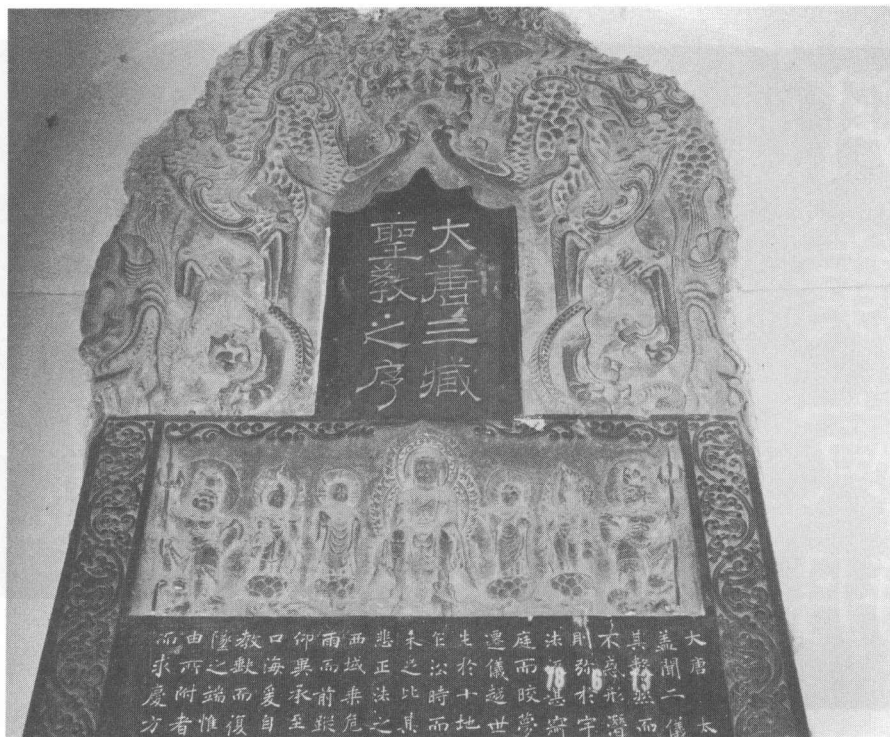 大唐三藏
聖教之序
大唐 太
蓋聞二儀
其數然而
不惑形潛
則弥於宇
法流湛寂
庭而皎夢
遷儀越世
生於十地
乍沿時而
未足比其
悲正法之
西域乗危
雨而前蹤
仰異承至
口海爰自
教缺而復
墜之端惟
由所附者
而求慶方